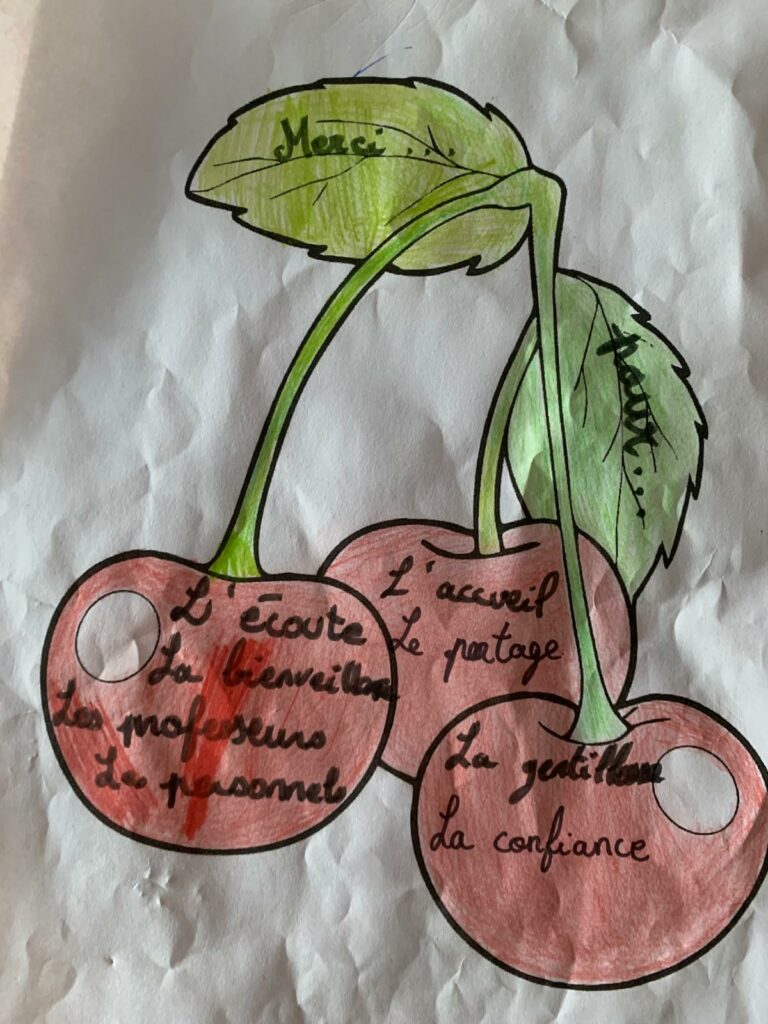 Merci ....
pour...
L'écoute
La bienveillance
Les professeurs
Le personnel
L'accueil
Le partage
La gentillesse
La confiance